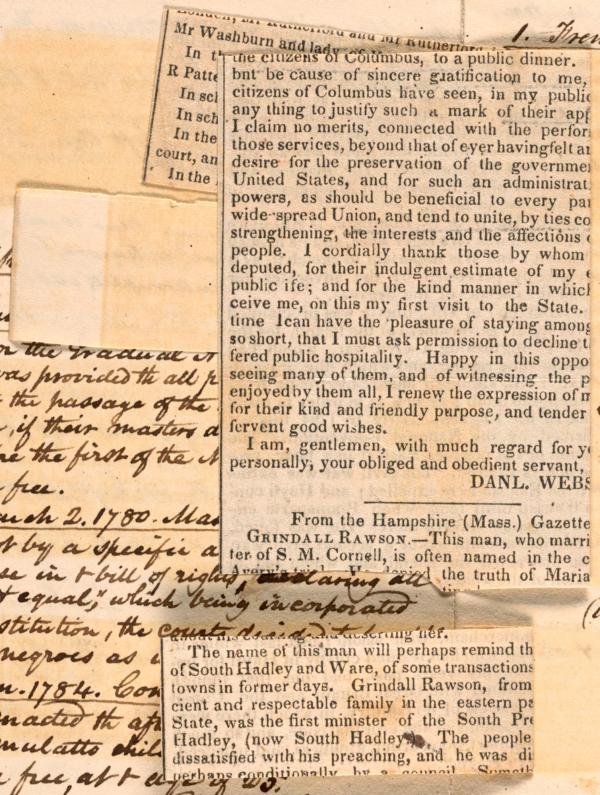 London, Mr Rutherford and Mr Rutherford,
Mr Washburn and lady of
1. Fren
In t
R Patte
In scl
In sch
In the
court, an
In the
the citizens of Columbus, to a public dinner.
but be cause of sincere gratification to me,
citizens of Columbus have seen, in my public
any thing to justify such a mark of their app
I claim no merits, connected with the perfor
those services, beyond that of ever havingfelt an
desire for the preservation of the governme
United States, and for such an administrat
powers, as should be beneficial to every pa
wide-spread Union, and tend to unite, by ties co
strengthening, the interests and the affections o
people. I cordially thank those by whom
deputed, for their indulgent estimate of my
public ife; and for the kind manner in which
ceive me, on this my first visit to the State.
time I can have the pleasure of staying among
so short, that I must ask permission to decline t
fered public hospitality. Happy in this oppo
seeing many of them, and of witnessing the p
enjoyed by them all, I renew the expression of m
for their kind and friendly purpose, and tender
fervent good wishes.
I am, gentlemen, with much regard for y
personally, your obliged and obedient servant,
DANL. WEBS
From the Hampshire (Mass.) Gazette
GRINDALL RAWSON.—This man, who marri
ter of S. M. Cornell, is often named in the c
Avery's trial. He denied the truth of Maria
deserting her.
The name of this man will perhaps remind th
of South Hadley and Ware, of some transactions
towns in former days. Grindall Rawson, from
cient and respectable family in the eastern pa
State, was the first minister of the South Pre
Hadley, (now South Hadley). The people
dissatisfied with his preaching, and he was di
perhaps conditionally, by a council. Someth
or the Gradual A
was provided th all p
the passage of the
, if their masters d
re the first of the N
free.
arch 2. 1780. Mas
ot by a specific a
se in & bill of rights, declaring all
& equal," which being incorporated
stitution, the courts decided th
negroes as
n. 1784. Con
enacted th aft
mulatto chil
free, at & age of 25.